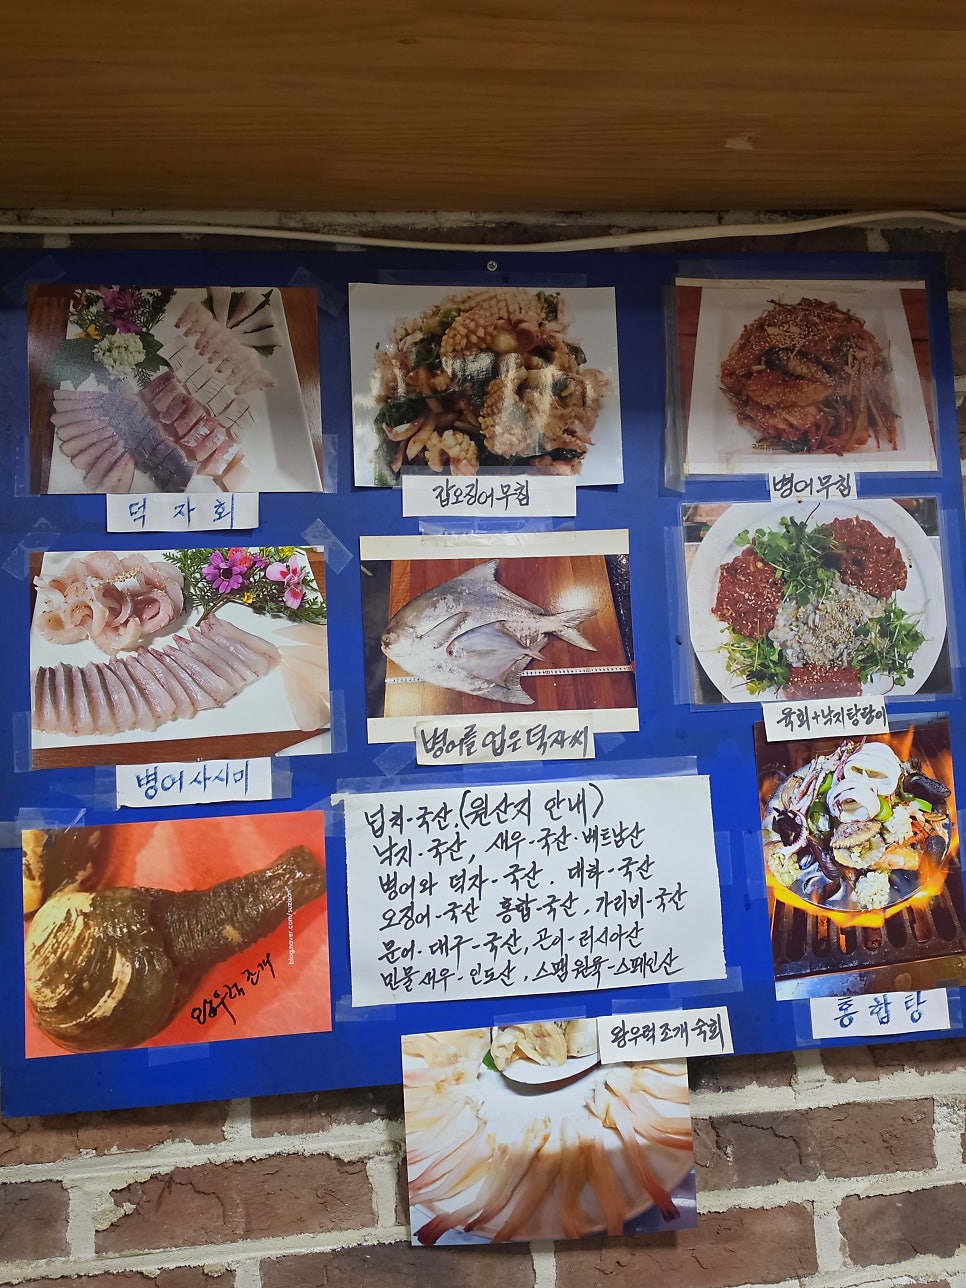 덕자회
갑오징어무침
병어무침
병어사시미
병어를 업은 덕자씨
육회+낙지탕탕이
넙치-국산, (원산지 안내)
낙지-국산, 새우-국산·베트남산
병어와 덕자-국산. 대하-국산
오징어-국산 홍합-국산, 가리비-국산
문어-대구-국산, 곤이-러시아산
민물새우-인도산, 스팸원육-스페인산
왕우럭조개
blog.naver.com/suzisori
홍합탕
왕우럭조개숙회